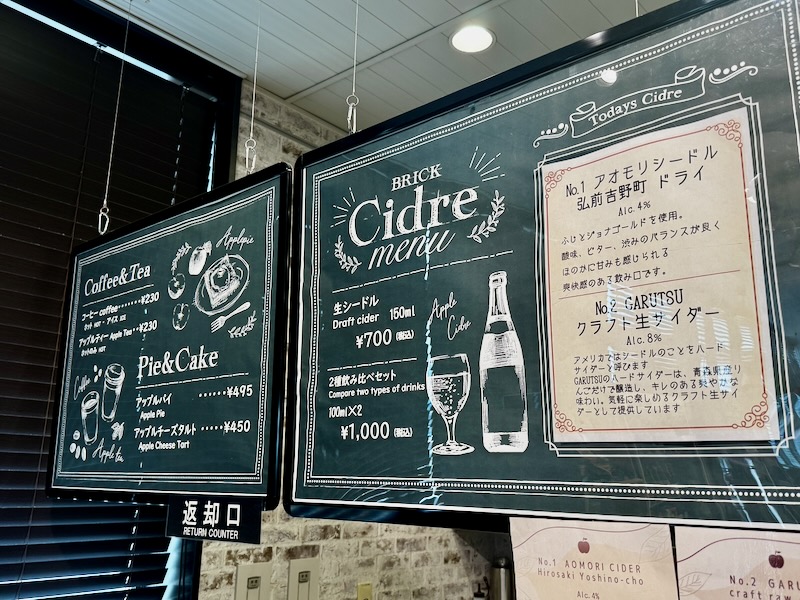 Coffee&Tea
コーヒー coffee・・・・・・・¥230
ホット HOT ・ アイス ICE
アップルティー Apple Tea・・¥230
ホットのみ HOT
Applepie
Pie&Cake
アップルパイ ・・・・・・¥495
Apple Pie
アップルチーズタルト ・・・・・¥450
Apple Cheese Tart
Coffee
Apple tea
返却口
RETURN COUNTER
BRICK
Cidre
menu
生シードル
Draft cider 150ml
¥700 (税込)
2種飲み比べセット
Compare two types of drinks
100ml×2
¥1,000 (税込)
Apple
Cidre
Todays Cidre
No.1 アオモリシードル
弘前吉野町 ドライ
Alc. 4%
ふじとジョナゴールドを使用。
酸味、ビター、渋みのバランスが良く
ほのかに甘みも感じられる
爽快感のある飲み口です。
No.2 GARUTSU
クラフト生サイダー
Alc. 8%
アメリカではシードルのことをハード
サイダーと呼びます
GARUTSUのハードサイダーは、青森県産り
んごだけで醸造し、キレのある爽やかな
味わい。気軽に楽しめるクラフト生サイ
ダーとして提供しています
No.1 AOMORI CIDER
Hirosaki Yoshino-cho
Alc.4%
No.2 GARU
craft raw